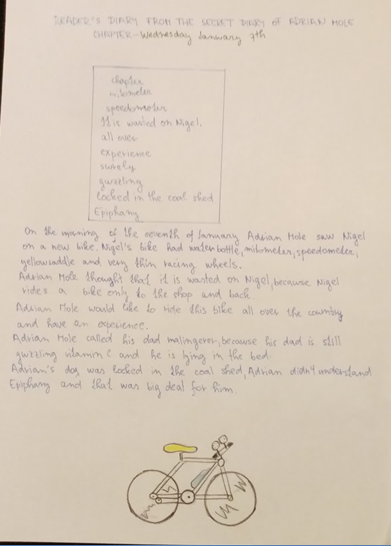 READER'S DIARY FROM THE SECRET DIARY OF ADRIAN MOLE
CHAPTER-Wednesday January 7th
chapter
milometer
speedometer
It is wasted on Nigel.
all over
experience
surely
guzzling
locked in the coal shed
Epiphany
On the morning of the seventh of January Adrian Mole saw Nigel
on a new bike. Nigel's bike had water bottle, milometer, speedometer,
yellow saddle and very thin racing wheels.
Adrian Mole thought that it is wasted on Nigel, because Nigel
rides a bike only to the shop and back.
Adrian Mole would like to ride this bike all over the country
and have an experience.
Adrian Mole called his dad malingerer, because his dad is still
guzzling vitamin C and he is lying in the bed.
Adrian's dog was locked in the coal shed, Adrian didn't understand
Epiphany and that was big deal for him.